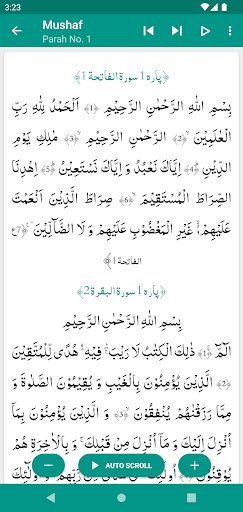 3:23
Mushaf
Parah No. 1
﴿پارہ 1 سورة الفاتحة 1﴾
بِسْمِ اللهِ الرَّحْمٰنِ الرَّحِيْمِ ﴿1﴾ اَلْحَمْدُ لِلّٰهِ رَبِّ
الْعٰلَمِيْنَ ﴿2﴾ الرَّحْمٰنِ الرَّحِيْمِ ﴿3﴾ مٰلِكِ يَوْمِ
الدِّيْنِ ﴿4﴾ اِيَّاكَ نَعْبُدُ وَ اِيَّاكَ نَسْتَعِيْنُ ﴿5﴾ اِهْدِنَا
الصِّرَاطَ الْمُسْتَقِيْمَ ﴿6﴾ صِرَاطَ الَّذِيْنَ اَنْعَمْتَ
عَلَيْهِمْ غَيْرِ الْمَغْضُوْبِ عَلَيْهِمْ وَ لَا الضَّآلِّيْنَ ﴿7﴾ ع
الفاتحة 1﴾
﴿پارہ 1 سورة البقرة 2﴾
بِسْمِ اللهِ الرَّحْمٰنِ الرَّحِيْمِ
الٓمّٓ ﴿1﴾ ذٰلِكَ الْكِتٰبُ لَا رَيْبَ فِيْهِ هُدًى لِّلْمُتَّقِيْنَ
الَّذِيْنَ يُؤْمِنُوْنَ بِالْغَيْبِ وَ يُقِيْمُوْنَ الصَّلٰوةَ وَ
مِمَّا رَزَقْنٰهُمْ يُنْفِقُوْنَ ﴿3﴾ وَ الَّذِيْنَ يُؤْمِنُوْنَ بِمَآ
اُنْزِلَ اِلَيْكَ وَ مَآ اُنْزِلَ مِنْ قَبْلِكَ وَ بِالْاٰخِرَةِ هُمْ
AUTO SCROLL